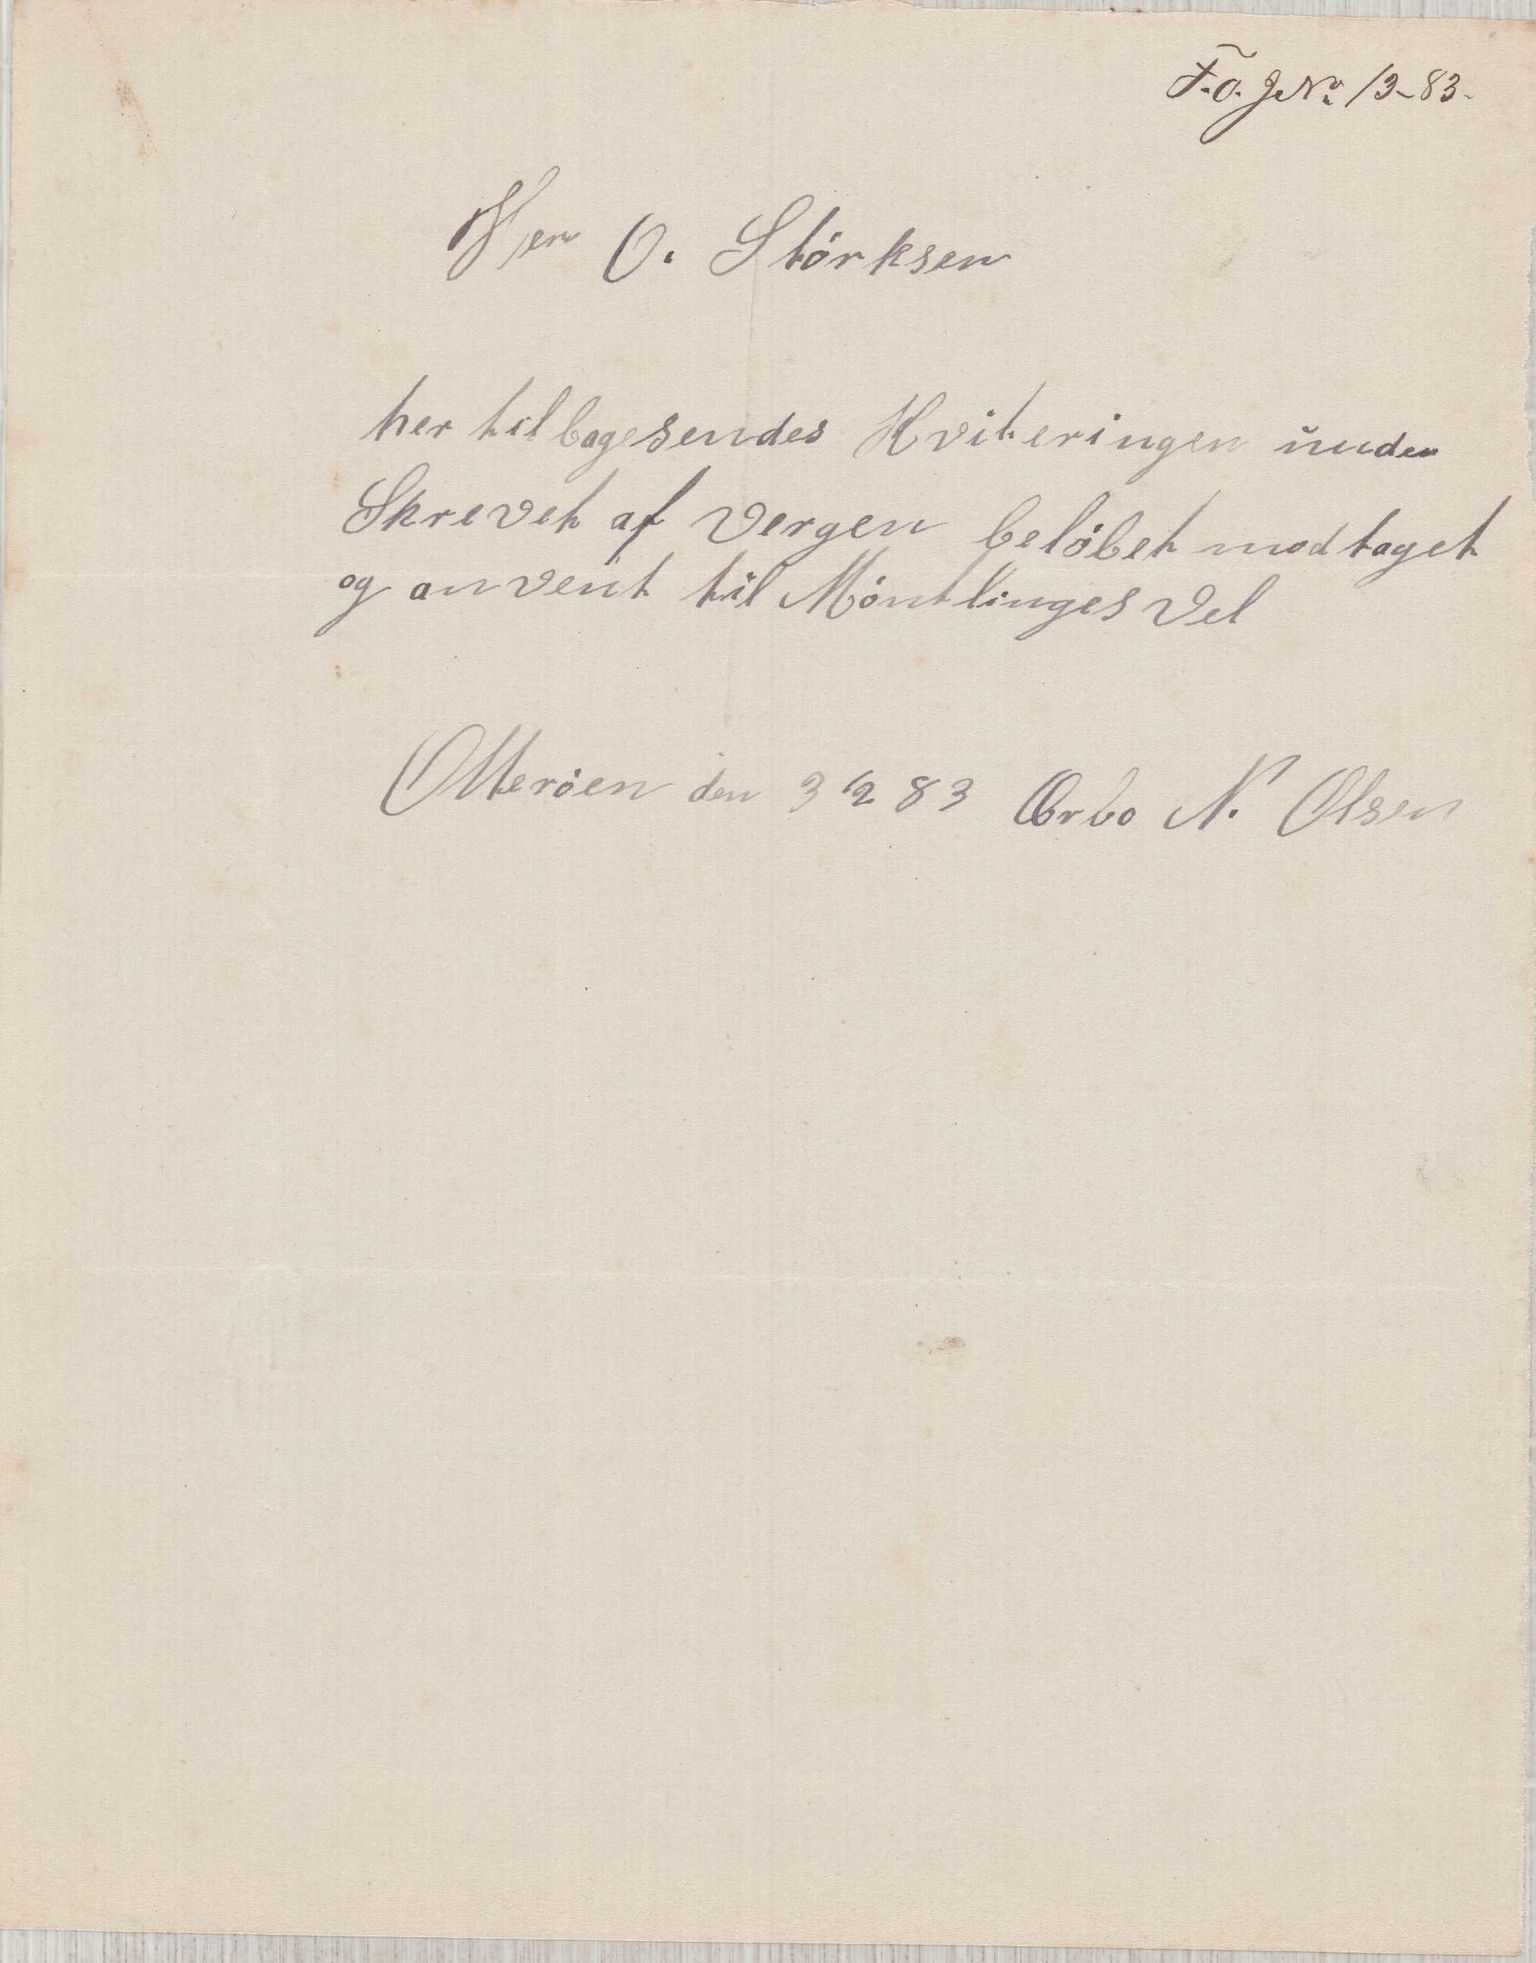 F.O. J No 13-83.
Herr O. Störksen
her tilbagesendes Kviteringen under
Skrevet af Vergen belöbet modtaget
og anvent til Möntlinges Vel
Otteröen den 3 /2 83 Orbo N. Olsen